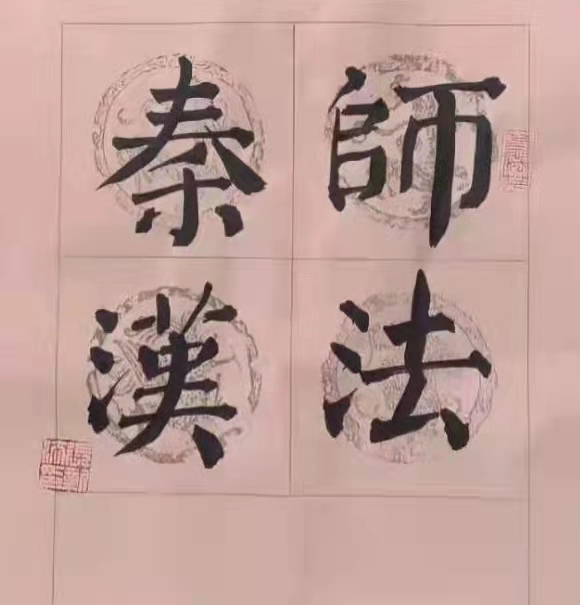 師法
秦漢